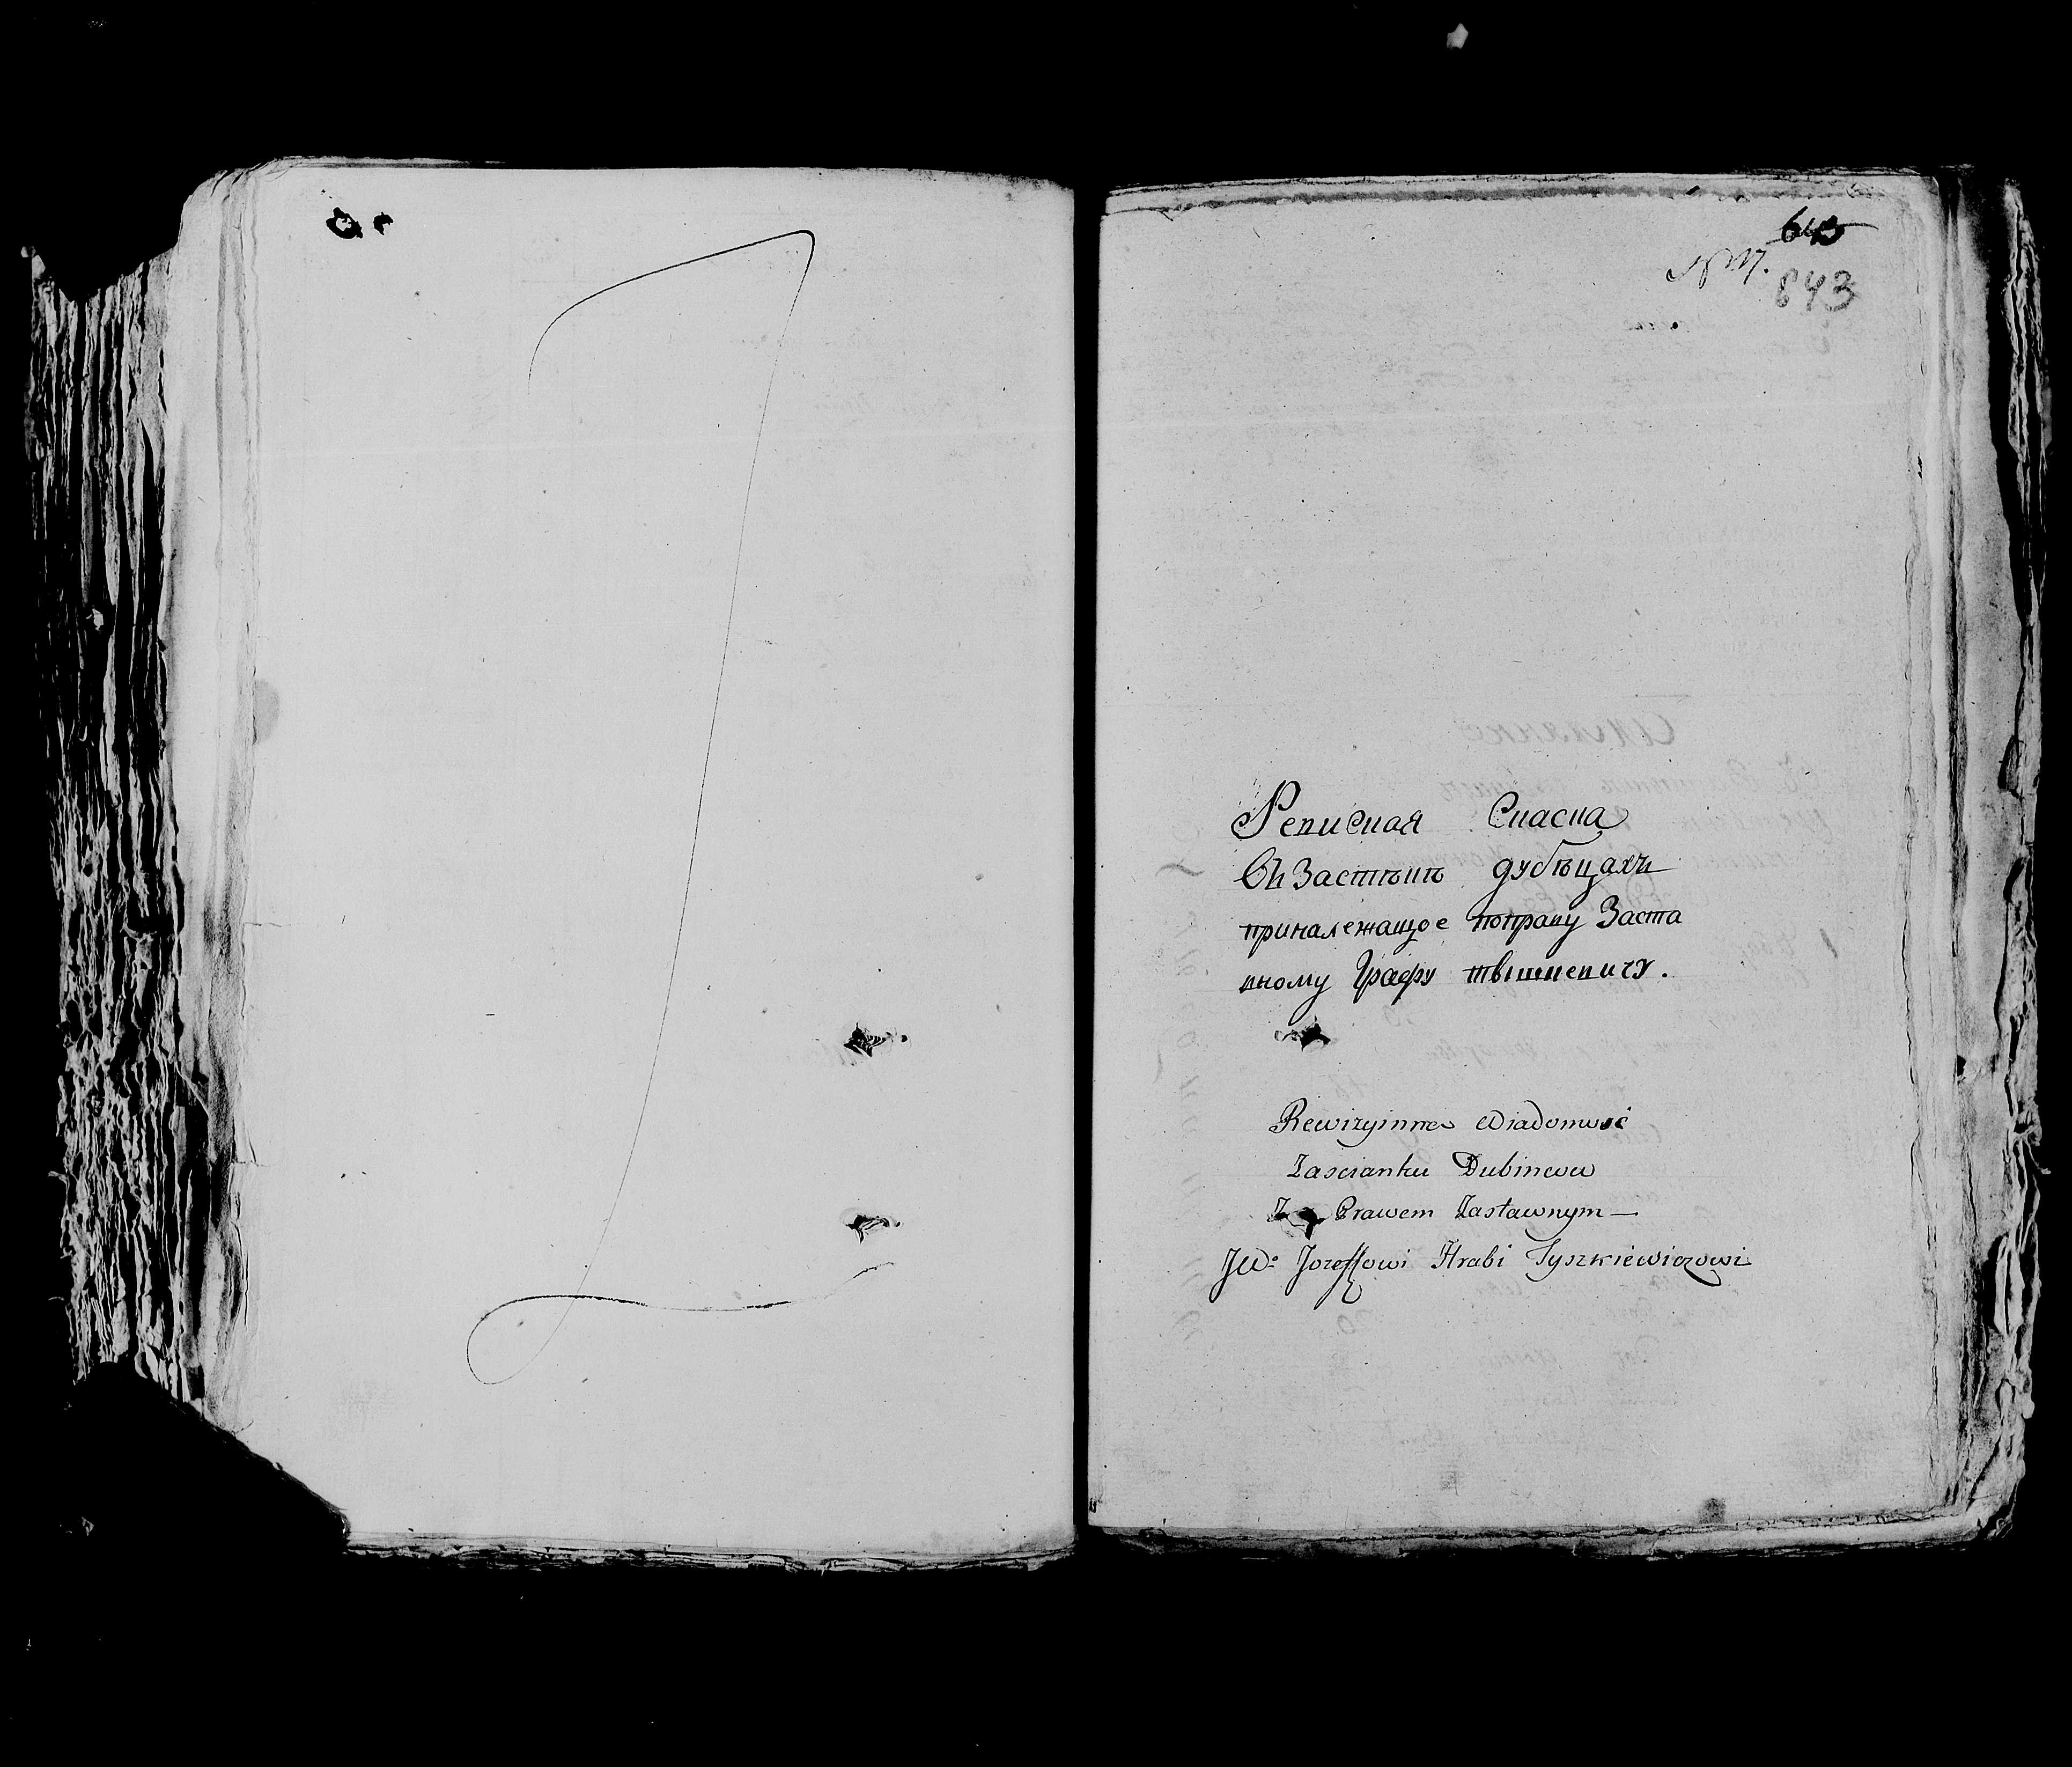 643
843
Ревизная Сказка
Въ Застѣнкѣ дубѣцахъ
приналежащое поправу Заста
вному Графу тышкевичу.
Rewizyinne Wiadomość
Zascianku Dubincu
Z Prawem Zastawnym —
JWo Jozeffowi Hrabi Tyszkiewiczowi